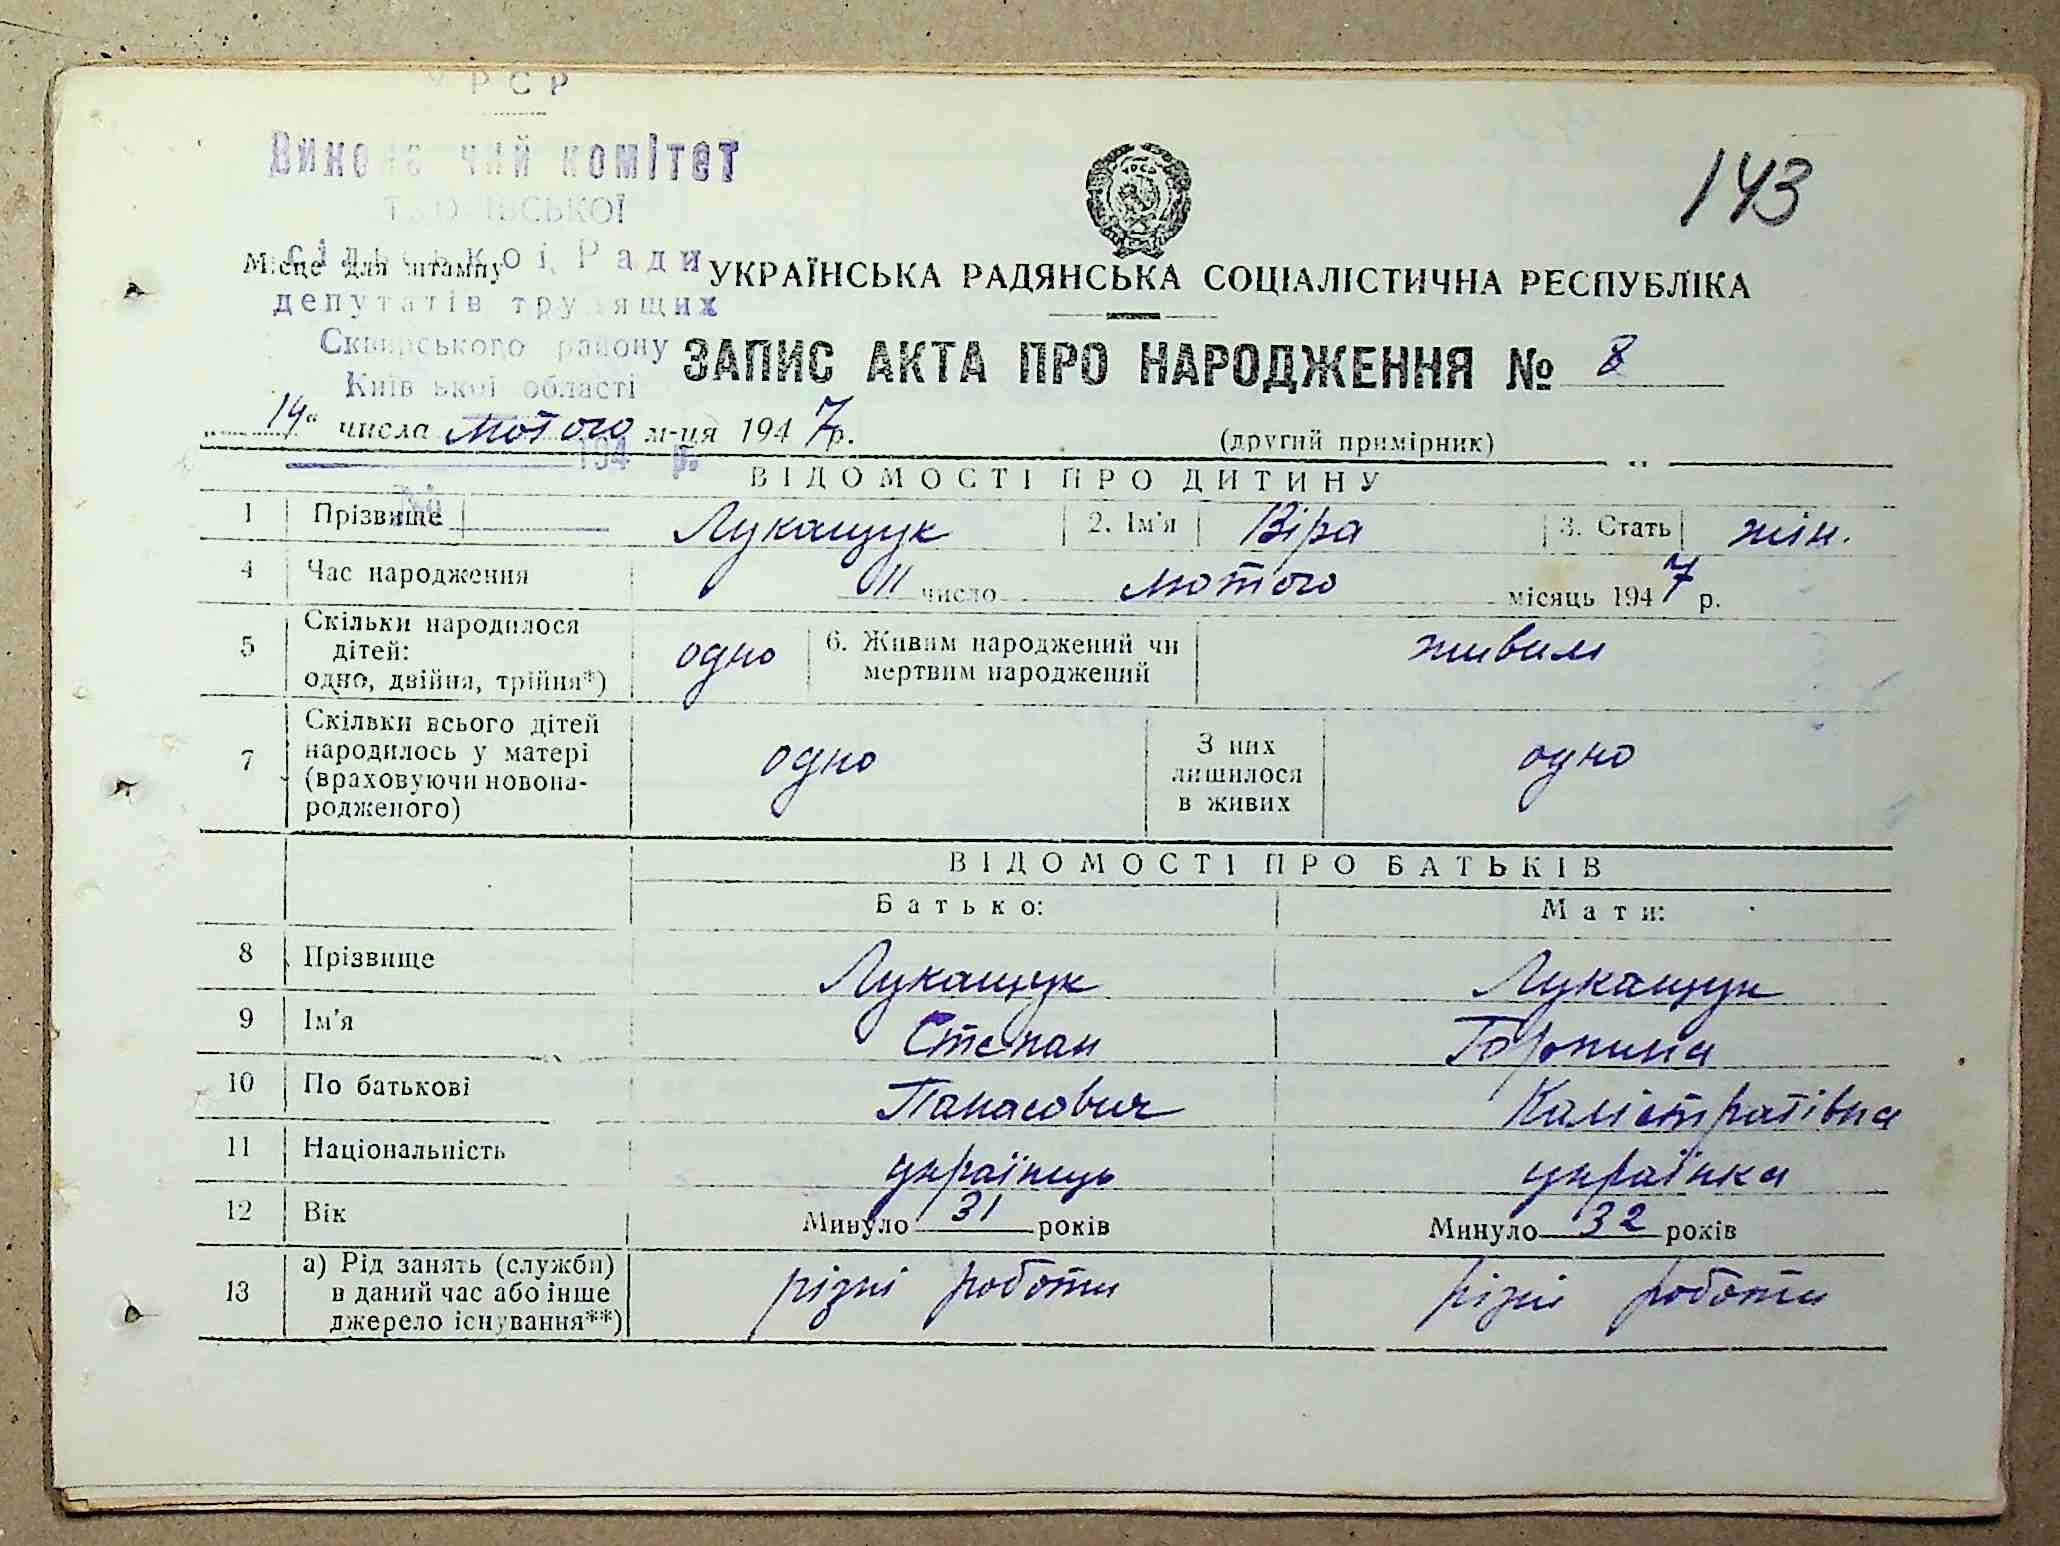 УРСР
Виконавчий комітет
сільської Ради
депутатів трудящих
Сквирського району
Київської області
194 р.
№
143
Місце для штампу
УКРАЇНСЬКА РАДЯНСЬКА СОЦІАЛІСТИЧНА РЕСПУБЛІКА
ЗАПИС АКТА ПРО НАРОДЖЕННЯ № 8
„14“ числа лютого м-ця 1947 р. (другий примірник)
ВІДОМОСТІ ПРО ДИТИНУ
1 Прізвище Лукащук 2. Ім'я Віра 3. Стать жін.
4 Час народження 11 число лютого місяць 1947 р.
5 Скільки народилося дітей: одно, двійня, трійня*) одно 6. Живим народжений чи мертвим народжений живим
7 Скільки всього дітей народилось у матері (враховуючи новонародженого) одно З них лишилося в живих одно
ВІДОМОСТІ ПРО БАТЬКІВ
Батько: Мати:
8 Прізвище Лукащук Лукащук
9 Ім'я Степан Горпина
10 По батькові Панасович Калістратівна
11 Національність українець українка
12 Вік Минуло 31 років Минуло 32 років
13 а) Рід занять (служби) в даний час або інше джерело існування**) різні роботи різні роботи